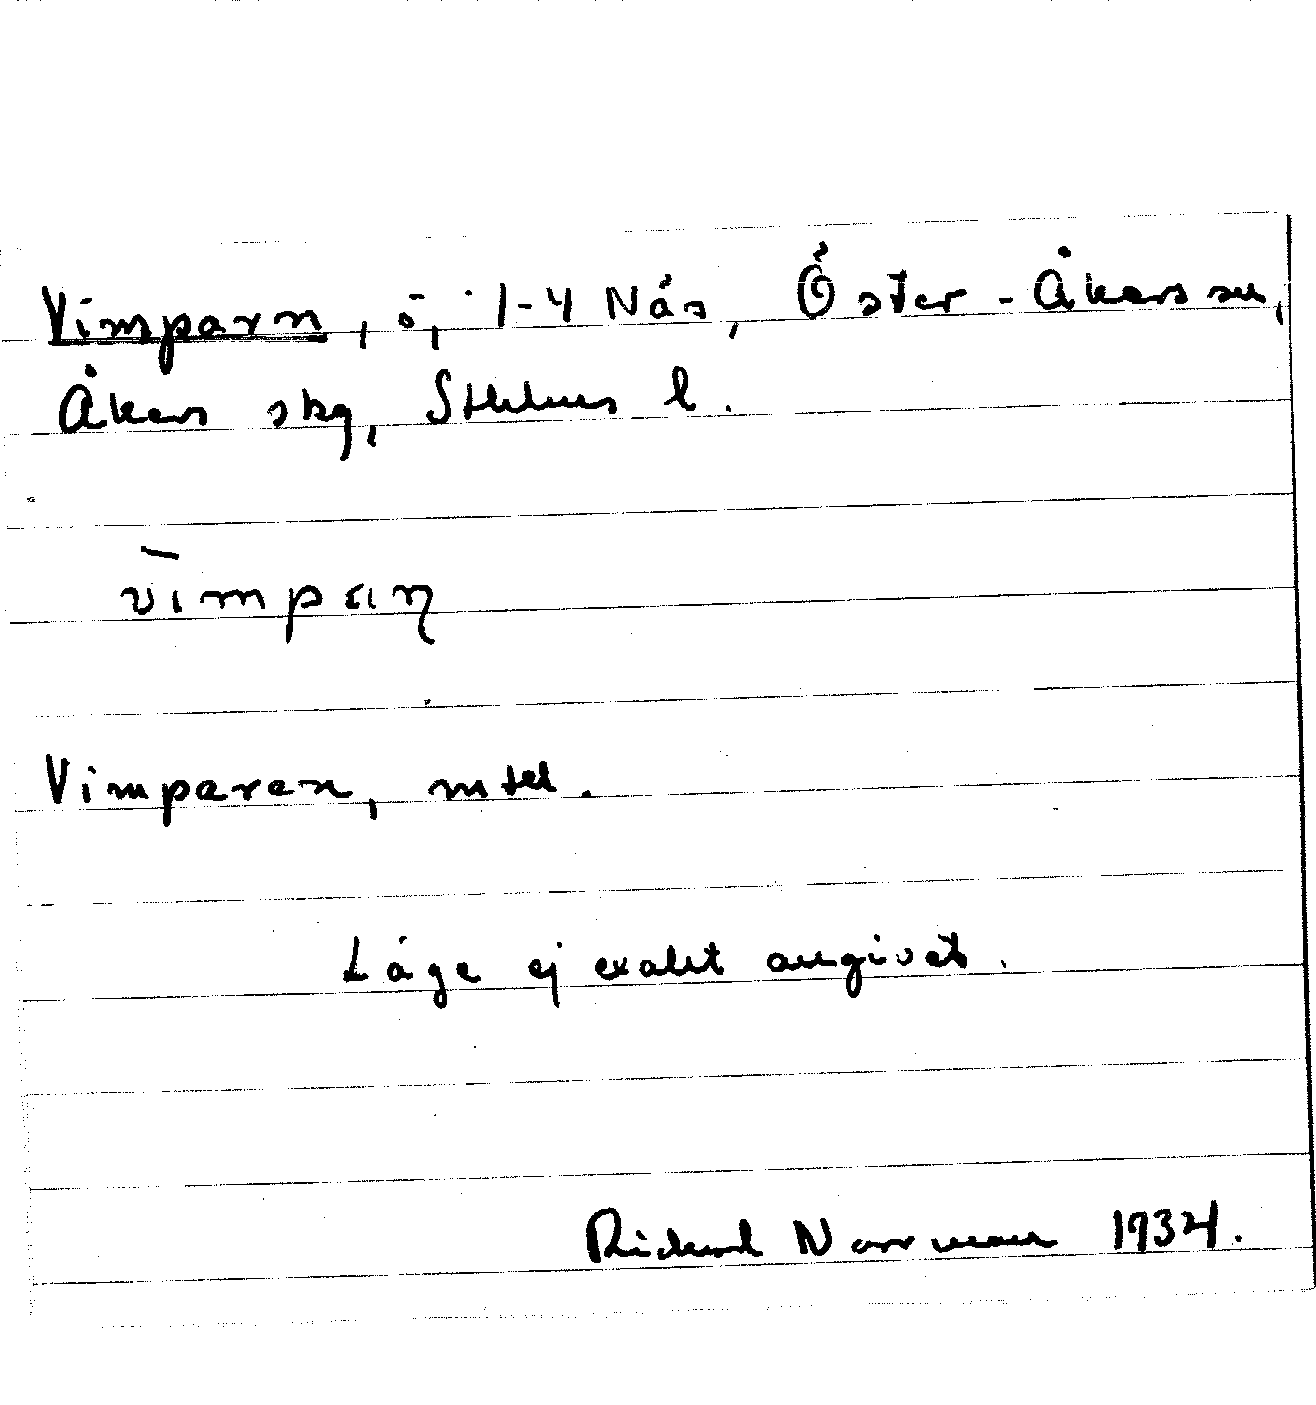 Vimparn, ö, 1-4 Näs, Öster-Åkers sn,
Åkers skg, Sthlms l.
vīmpaɳ
Vimparen, mtbl.
Läge ej exakt angivet.
Rickard Norrman 1934.